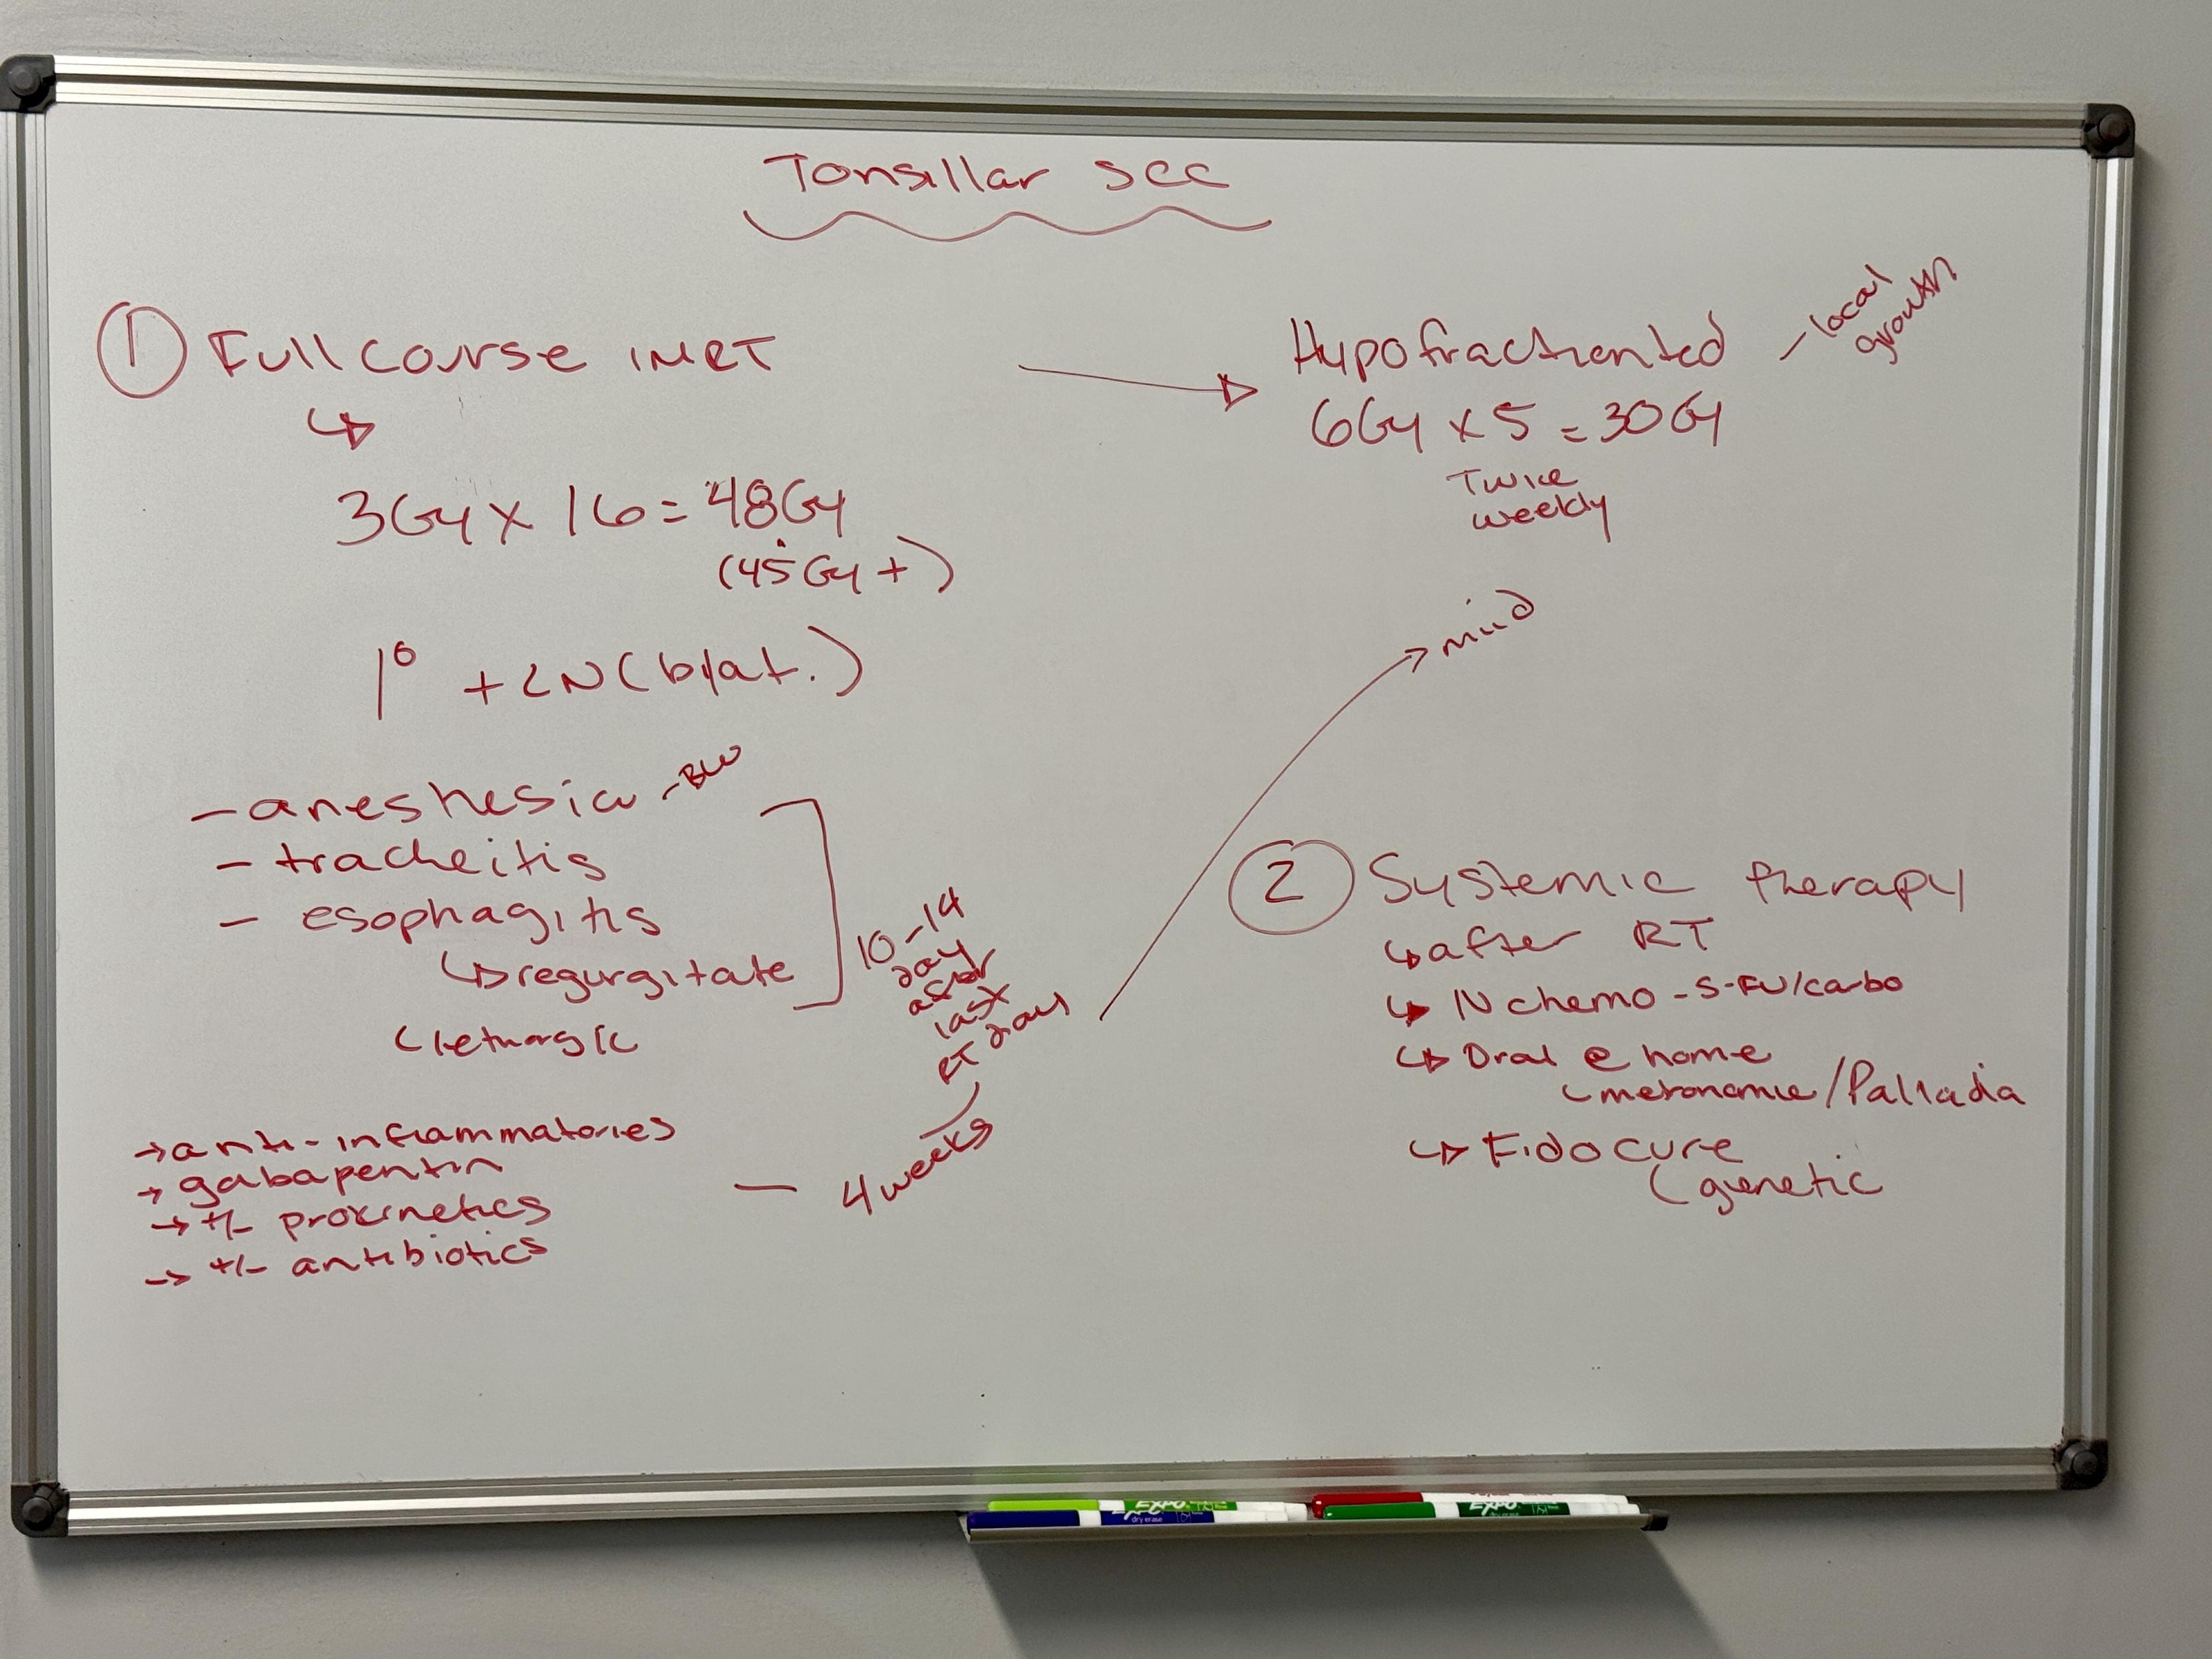 Tonsillar SCC
① Full course IMRT
↳
3Gy x 16 = 48Gy
(45Gy +)
1° + LN (bilat.)
- anesthesia - BW
- tracheitis
- esophagitis
↳ regurgitate
lethargic
10-14
day
after
last
RT day
4 weeks
→ anti-inflammatories
→ gabapentin
→ +/- prokinetics
→ +/- antibiotics
Hypofractionated - local
growth
6Gy x 5 = 30Gy
Twice
weekly
mild
② Systemic therapy
↳ after RT
↳ IV chemo - 5-FU/carbo
↳ Oral @ home
metronomic/Palladia
↳ Fidocure
genetic
EXPO
dry erase
EXPO